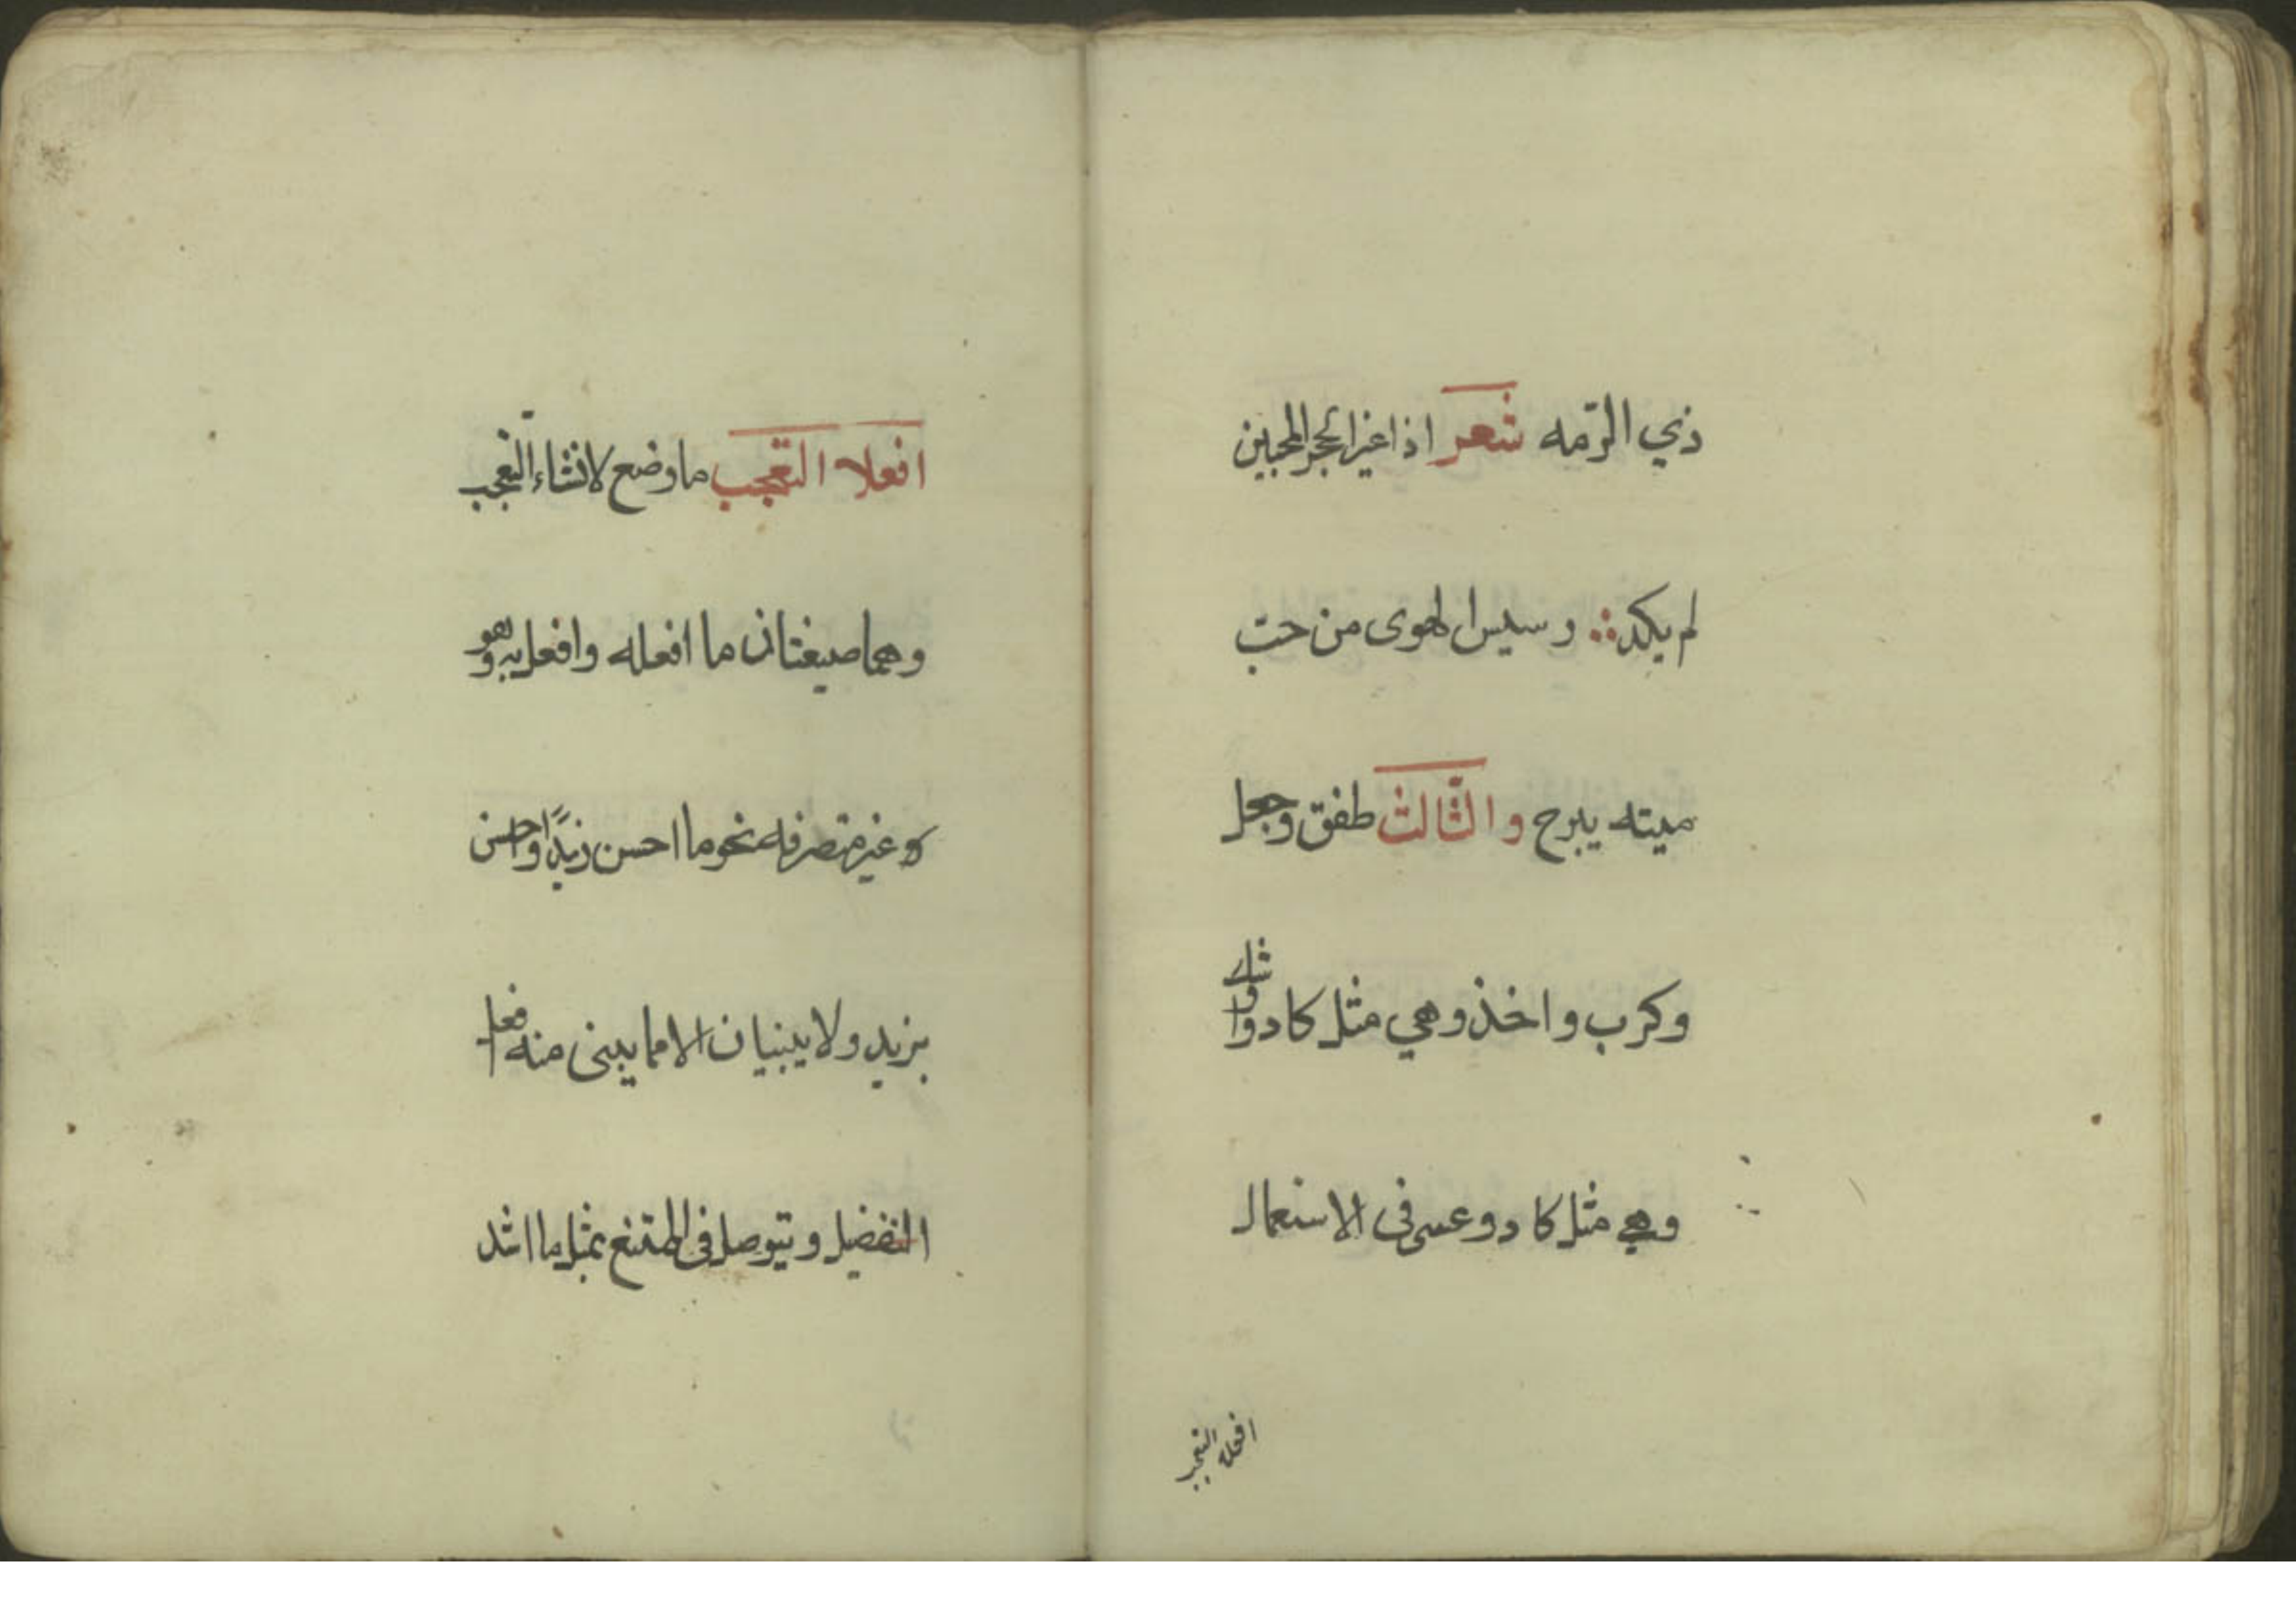 ذي الرّمه شعر اذا غير الهجر المحبين
لم يكد ؞ رسيس الهوى من حبّ
ميته يبرح والثّالث طفق وجعل
وكرب واخذ وهي مثل كاد واوشك
وهي مثل كاد وعسى في الاستعمال
افعلا التعجب
افعلا التّعجب ما وضع لانشاء التّعجب
وهما صيغتان ما افعله وافعل به وهو
غير متصرفه نحو ما احسن زيدًا واحسن
بزيد ولا يبنيان الا مما يبنى منه افعل
التفضيل ويتوصل فى الممتنع بمثل ما اشد